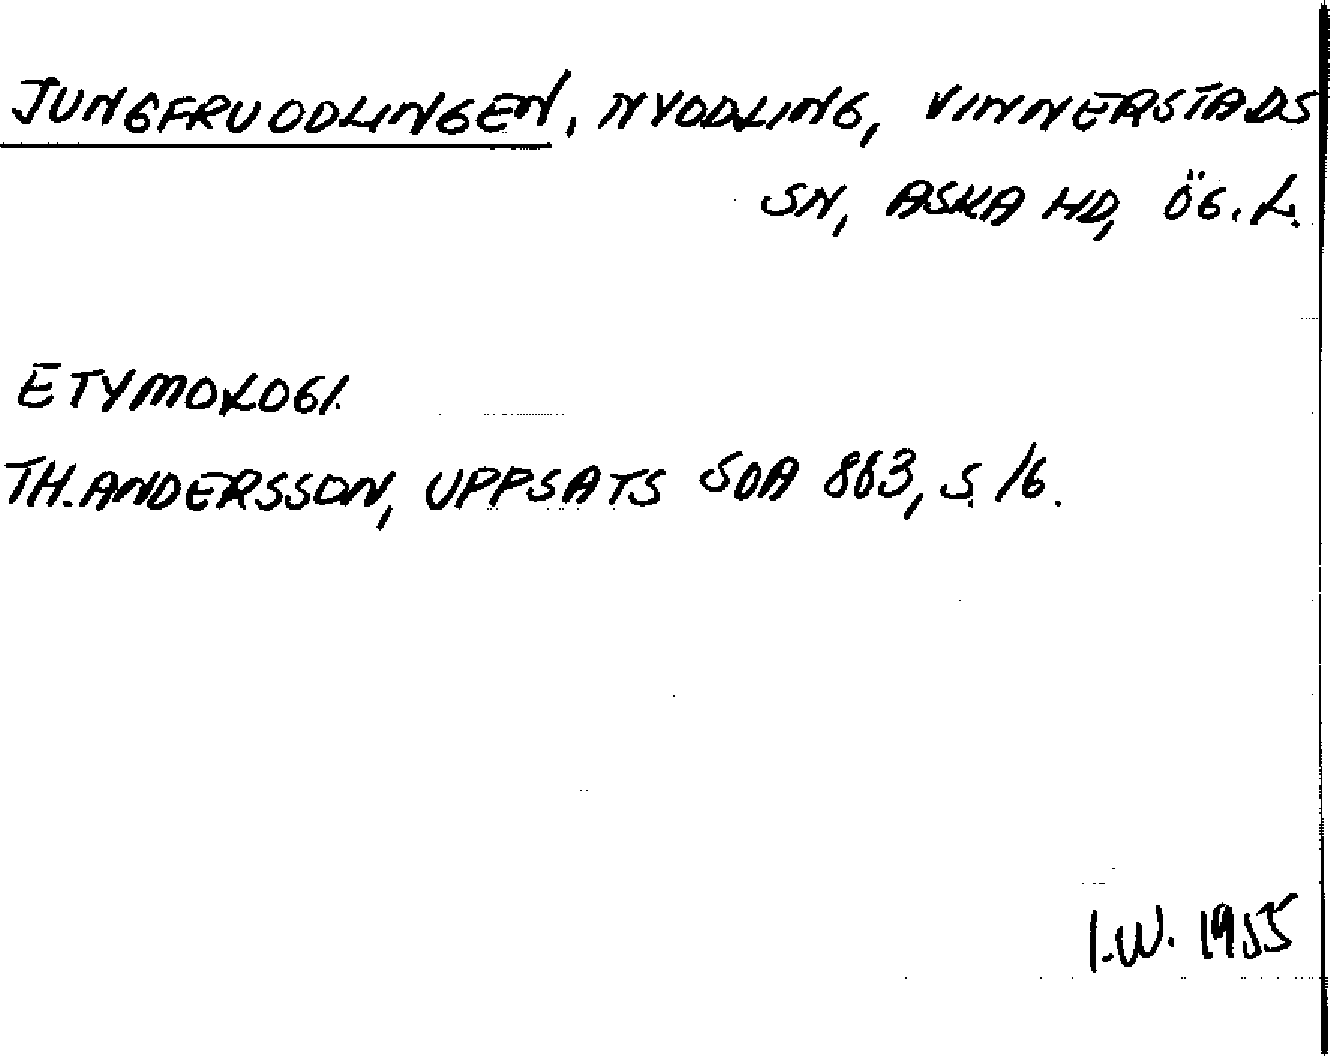 JUNGFRUODLINGEN, NYODLING, VINNERSTADS
SN, ASKA HD, ÖG.L.
ETYMOLOGI.
TH. ANDERSSON, UPPSATS SOA 863, S. 16.
I.W. 1955